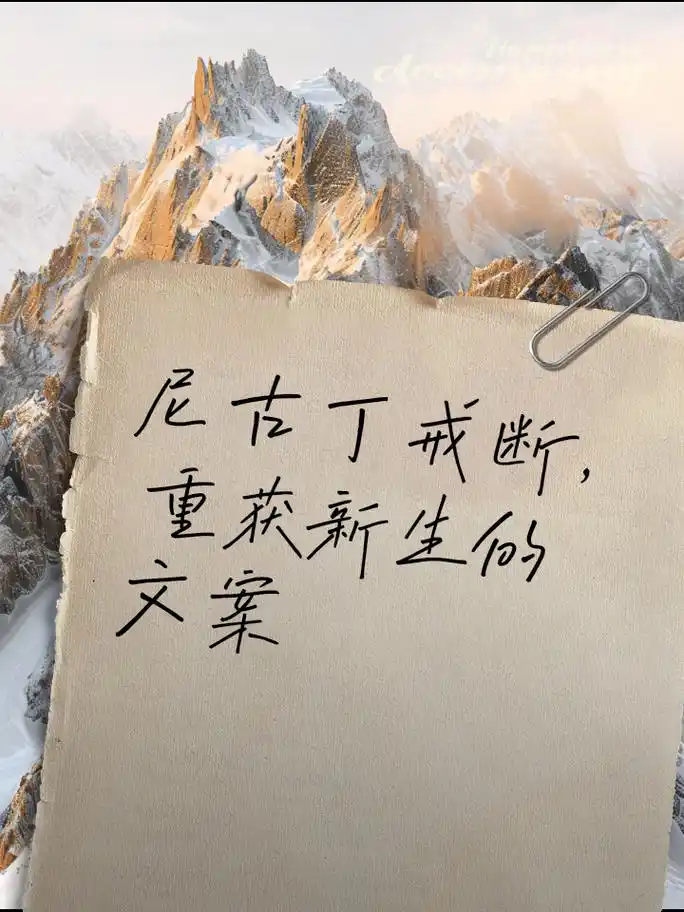 尼古丁戒断，
重获新生的
文案